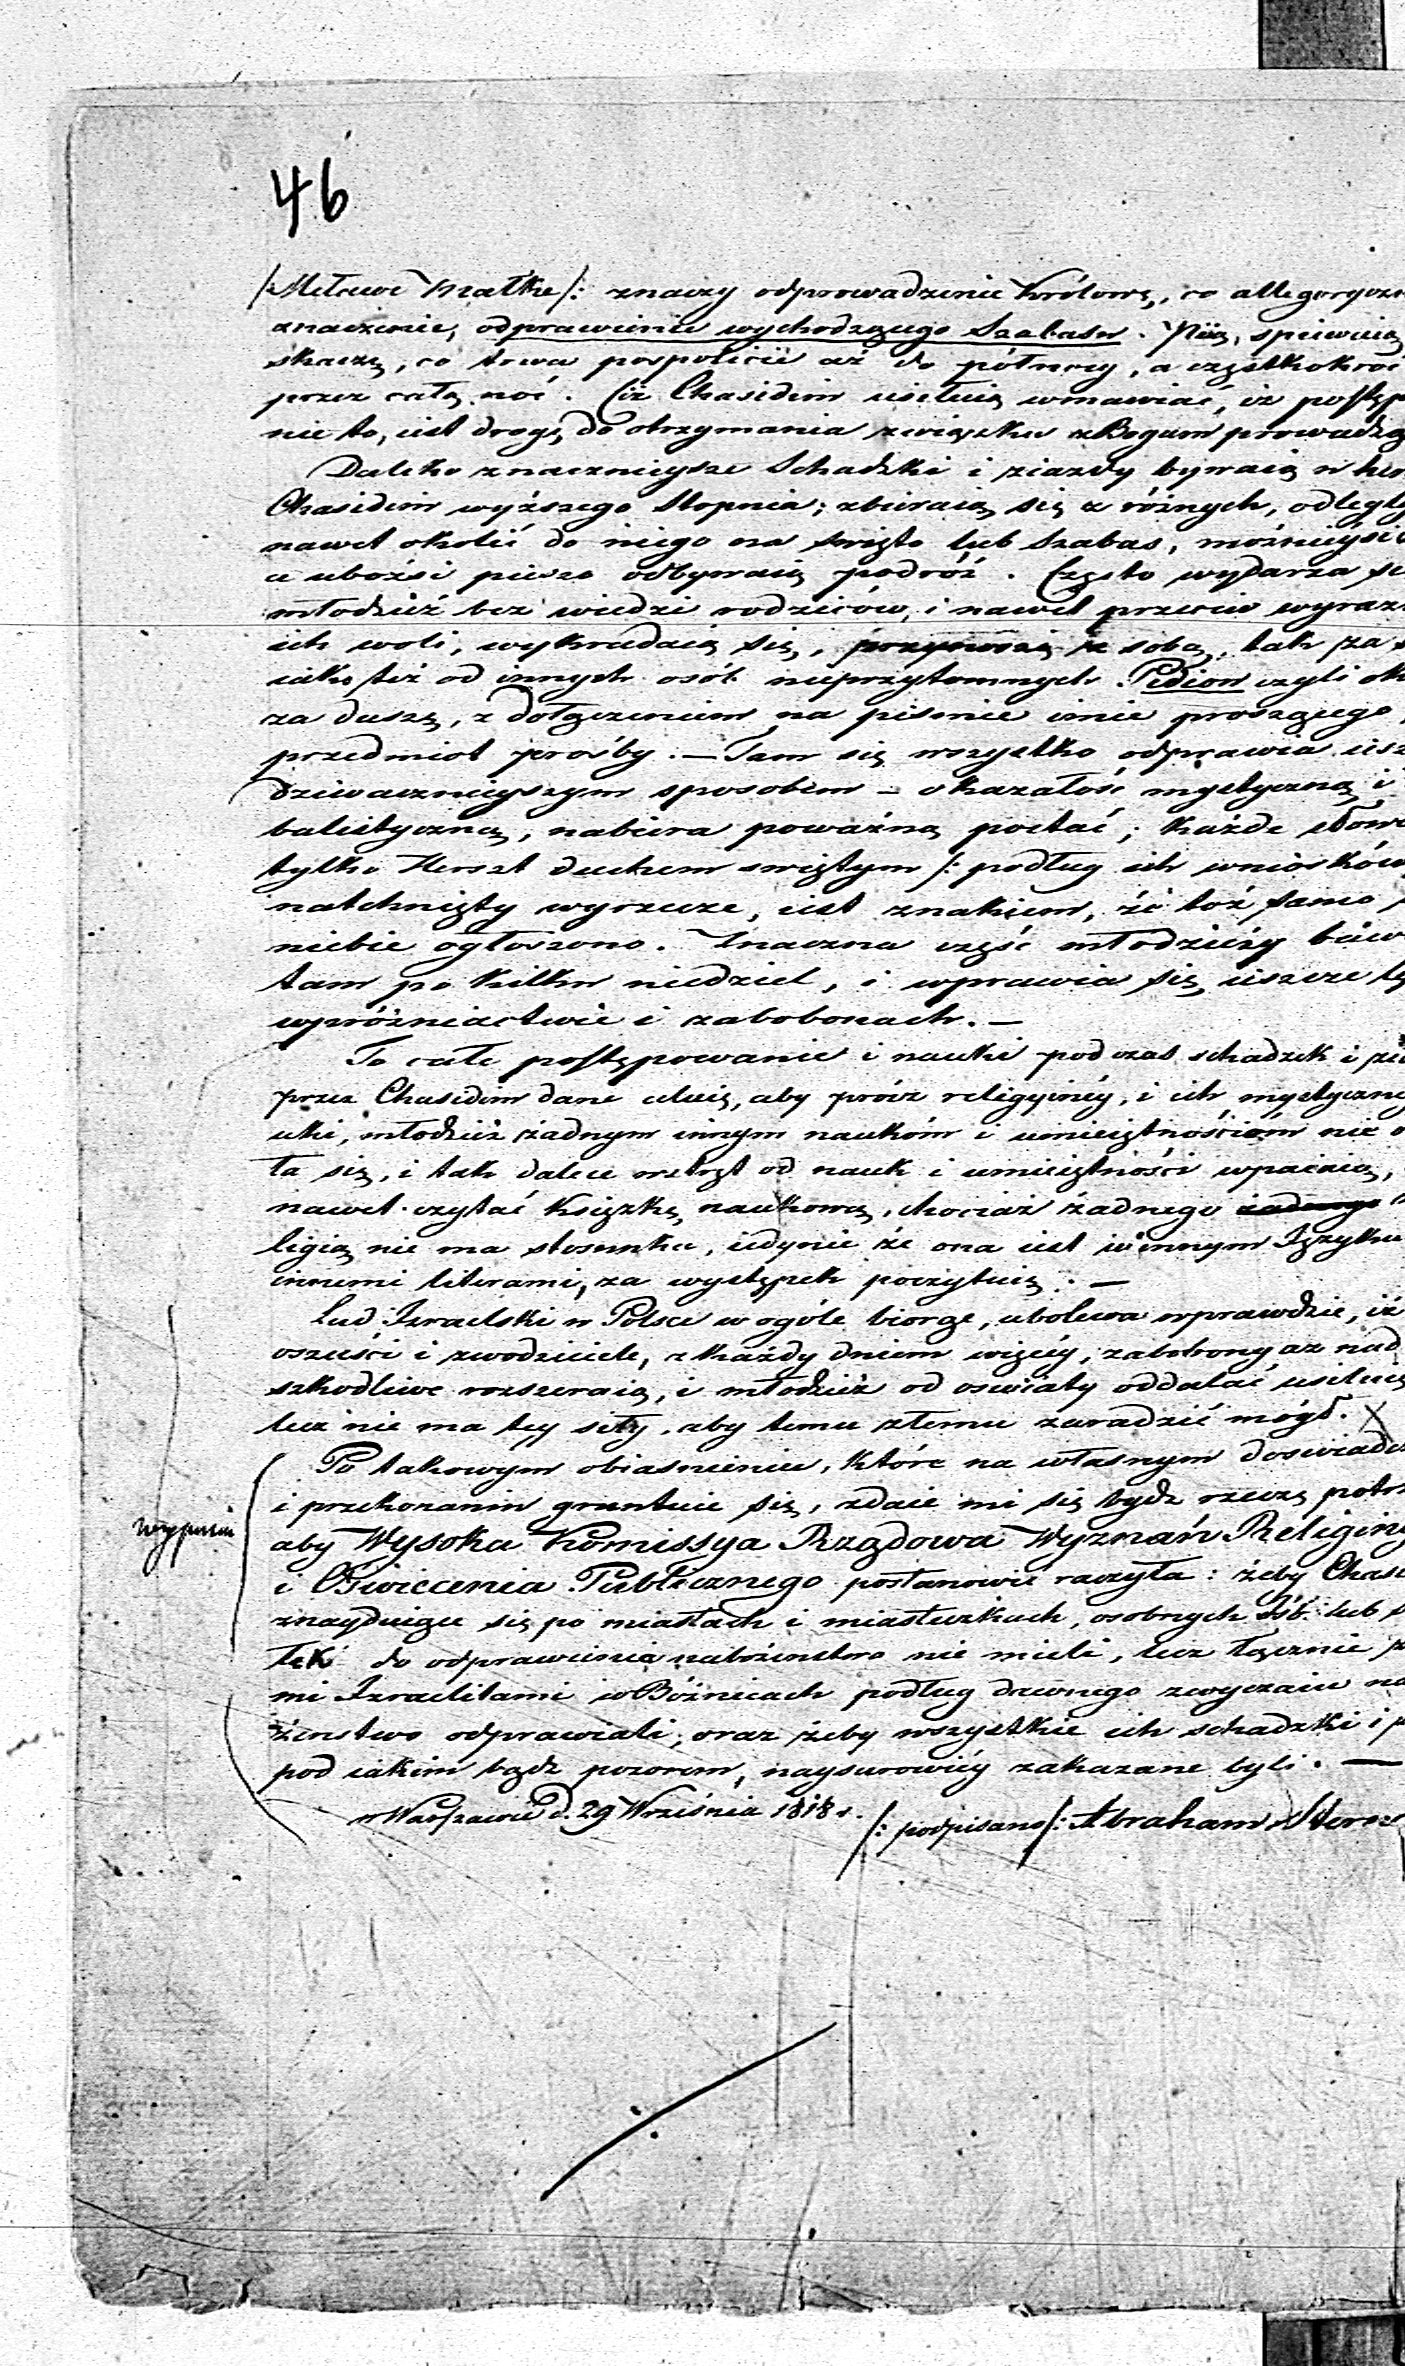 46
/:Mełewe Małke/: znaczy odprowadzenie Królowę, co allegoryczn
znaczenie, odprawienie wychodzącego Szabasu. Piią, spiewaią
skaczą, co trwa pospolicie aż do północy, a częstokroć
przez całą noc. Ciż Chasidim usiłuią wmawiać, iż postęp
nie to, iest drogą do otrzymania związku z Bogiem prowadzą
Daleko znacznieysze Schadzki i ziazdy bywaią u her
Chasidim wyższego Stopnia; zbieraią się z różnych, odległy
nawet okolić do niego na święto lub Szabas, możnieysi
a ubożsi pieszo odbywaią podróż. Często wydarza się
młodzież bez wiedzi rodziców, i nawet przeciw wyraź
ich woli, wykradaią się, przynoszą ze sobą, tak za s
iako też od innych osób nieprzytomnych Pidion czyli ok
za duszę, z dołączeniem na piśmie imie proszącego,
przedmiot prośby. — Tam się wszystko odprawia iesz
dziwacznieyszym sposobem — okazałość mystyczną i
balistyczną, nabiera poważną postać; każde słowo
tylko Herszt duchem swiętym /: podług ich wniosków
natchnięty wyrzecze, iest znakiem, że toż samo
niebie ogłoszono. Znaczna część młodzieży bawi
tam po kilku niedziel, i wprawia się ieszcze
wpróżniactwie i zabobonach. —
To całe postępowanie i nauki podczas schadzek i zia
przez Chasidim dane celuią, aby prócz religyinéy, i ich mystyczn
uki, młodzież żadnym innym naukóm i umieiętnościóm nie o
ła się, i tak dalece wstręt od nauk i umieiętności wpaiaią,
nawet czytać Książkę naukową, chociaż żadnego żadnego
ligią nie ma stosunku, iedynie że ona iest w innym Języku
innemi literami, za występek poczytuią. —
Lud Izraelski w Polsce w ogóle biorąc, ubolewa wprawdzie, iż
oszuści i zwodziciele, z każdy dniem więcéy, zabobony az nad
szkodliwe rozszeraią, i młodzież od oswiaty oddalać usiłuią
lecz nie ma tey siły, aby temu złemu zaradzić mógł. X
Po takowym obiasnieniu, które na własnym doswiadc
i przekonaniu gruntuie się, zdaie mi się bydz rzeczą potrz
aby Wysoka Kommissya Rządowa Wyznań Religiny
i Oświecenia Publicznego postanowić raczyła: żeby Chasi
znayduiące się po miastach i miasteczkach, osobnych Izb lub s
łek do odprawienia nabożenstwa nie mieli, lecz łącznie z
mi Izraelitami w Bóżnicach podług dawnego zwyczaiu na
żenstwo odprawiali, oraz żeby wszystkie ich schadzki i
pod iakim bądz pozorem, naysurowiéy zakazane byli. —
w Warszawie d. 29 Września 1818 r. /: podpisano /: Abraham Stern